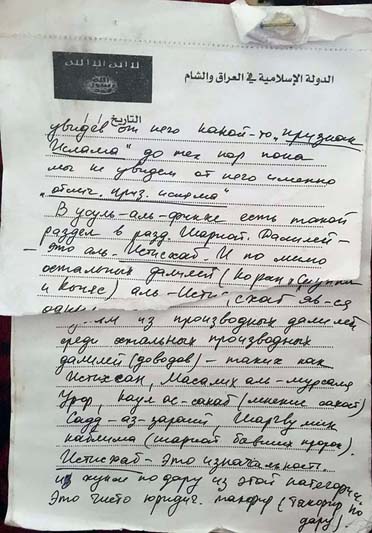 الدولة الإسلامية في العراق والشام
التاريخ
увидев от него какой-то "признак
Ислама" до тех пор пока
мы не увидем от него именно
"отлич. приз. ислама"
В усуль-аль-фикхе есть такой
раздел в разд. Шариат. Далилей -
- это аль-Истисхаб. И по мимо
остальных далилей (Коран и Сунны
и Кыяс) аль-Исти
из производных далилей
среди остальных производных
далилей (доводов) - таких как
Истихсан, Масалих аль-мурсаля
Урф, Кауль ас-сахаб (мнение сахаб)
Садд-аз-зараий, Шаръу ман
каблина (шариат бывших пророк.)
Истисхаб - это изначальность.
и хукм по дару из этой категории.
Это чисто юридич. такфир (такфир по
дару).